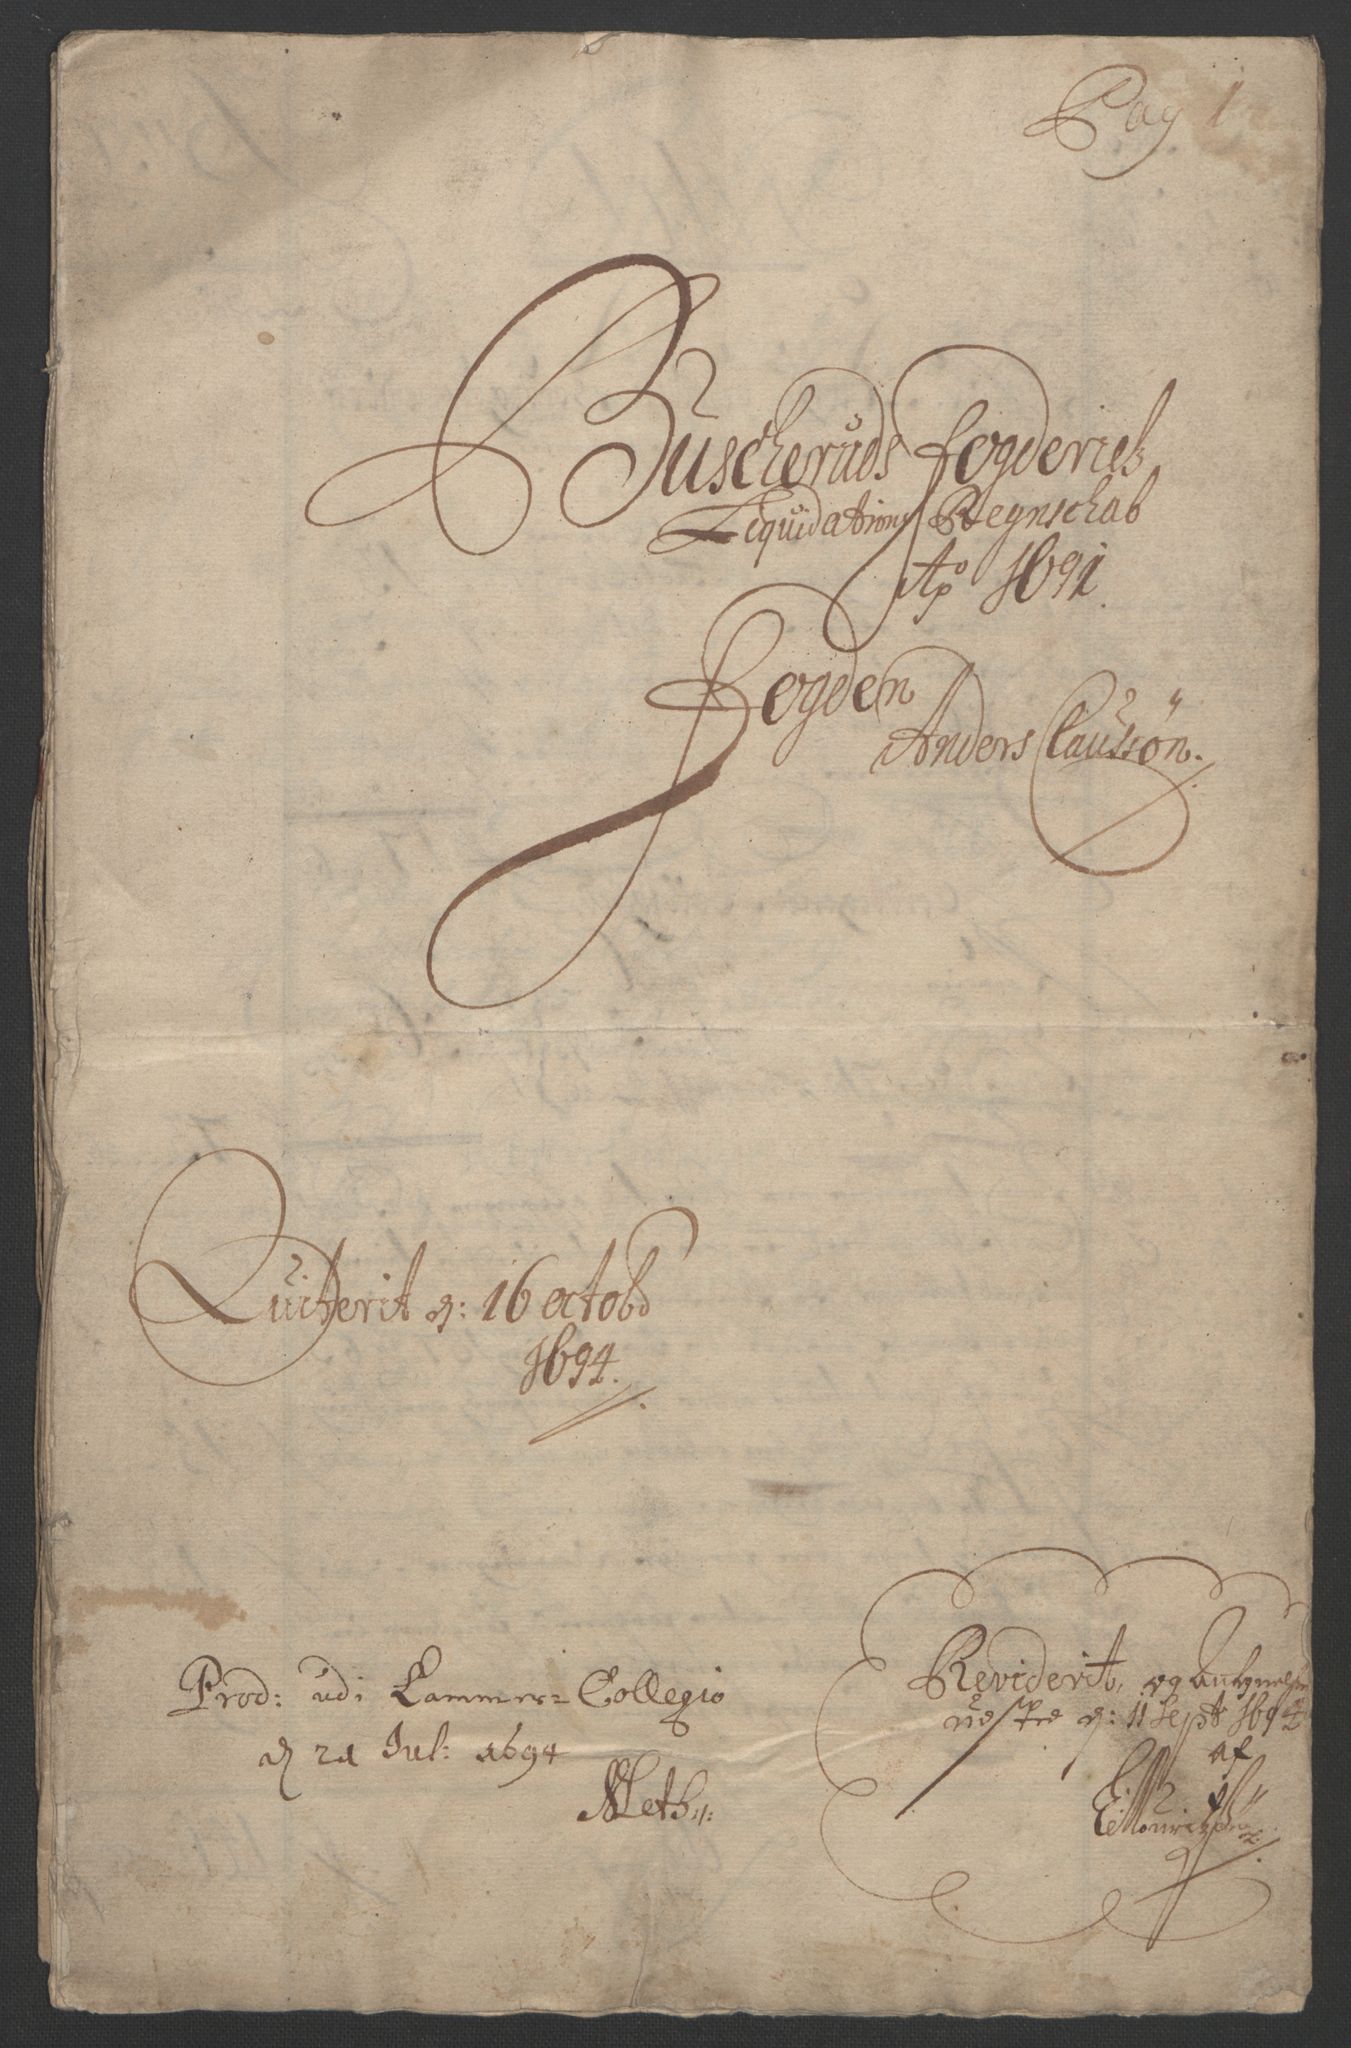 Pag 1
Buscheruds fogderies
Liquidations Regnschab
Ao 1691.
Fogden
Anders Claussøn.
Quitterit d: 16 octobr
1694.
Prod: udi Cammer-Collegio
d 21 Jul: 1694
Reviderit, og
d: 11 Sept 1694
af